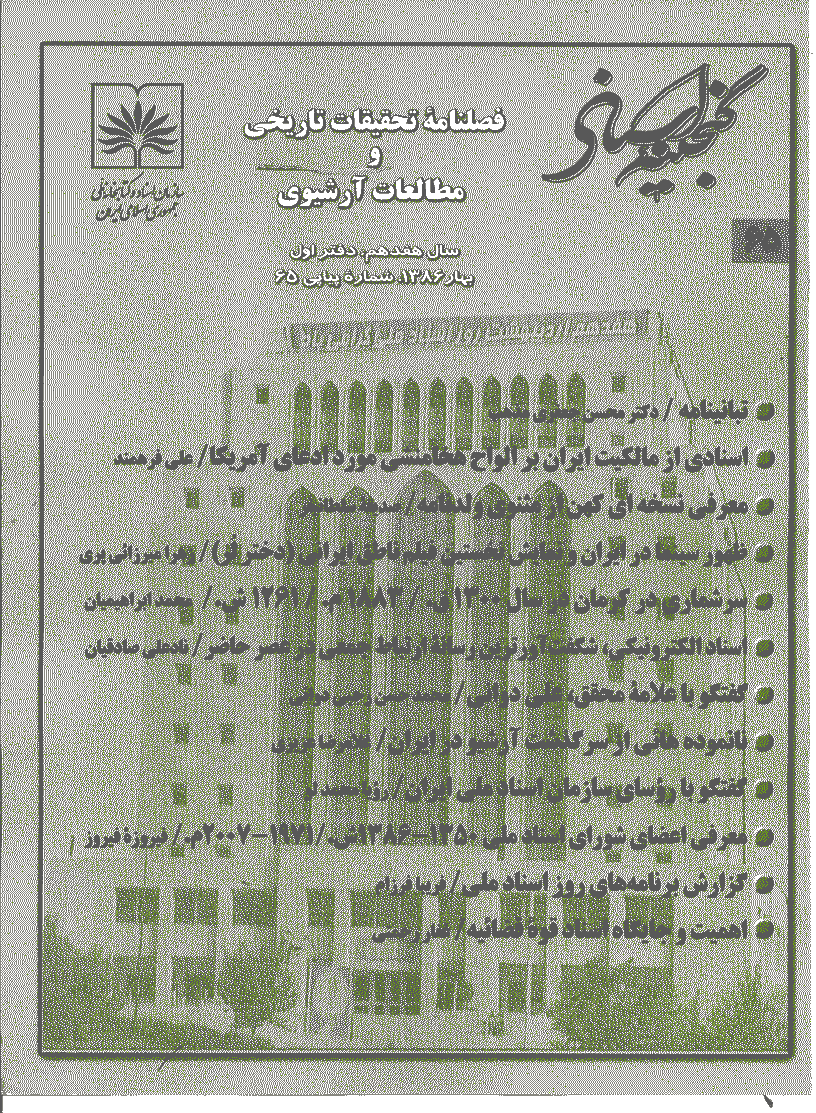 گنجینه اسناد
فصلنامهٔ تحقیقات تاریخی
و
مطالعات آرشیوی
سازمان اسناد و کتابخانه ملی
جمهوری اسلامی ایران
سال هفدهم، دفتر اول
بهار ۱۳۸۶، شمارهٔ پیاپی ۶۵
۶۵
تبانینامه / دکتر محسن جعفری مذهب
اسنادی از مالکیت ایران بر الواح هخامنشی مورد ادعای آمریکا / علی فرهمند
معرفی نسخه ای کهن از مثنوی ولدنامه /
ظهور سینما در ایران و نمایش نخستین فیلم ناطق ایرانی (دختر لر) / زهرا میرزائی پری
سرشماری در کرمان در سال ۱۳۰۰ ق. / ۱۸۸۳ م. / ۱۲۶۱ ش. / محمد ابراهیمیان
اسناد الکترونیکی، شگفت آورترین رسانهٔ ارتباط جمعی در عصر حاضر / نادعلی صادقیان
گفتگو با علامهٔ محقق، علی دوانی / محمد حسن رجبی دوانی
نانموده هائی از سرگذشت آرشیو در ایران / غلامرضا عزیزی
گفتگو با رؤسای سازمان اسناد ملی ایران /
معرفی اعضای شورای اسناد ملی ۱۳۵۰-۱۳۸۶ش. / ۱۹۷۱-۲۰۰۷م. / فیروزهٔ فیروز
گزارش برنامه‌های روز اسناد ملی / فریبا فرزام
اهمیت و جایگاه اسناد قوهٔ قضائیه /